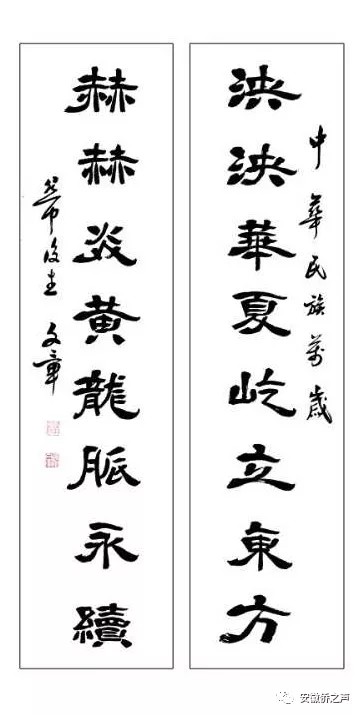 中華民族萬歲
泱泱華夏屹立東方
赫赫炎黄龍脈永續
文章
安徽侨之声